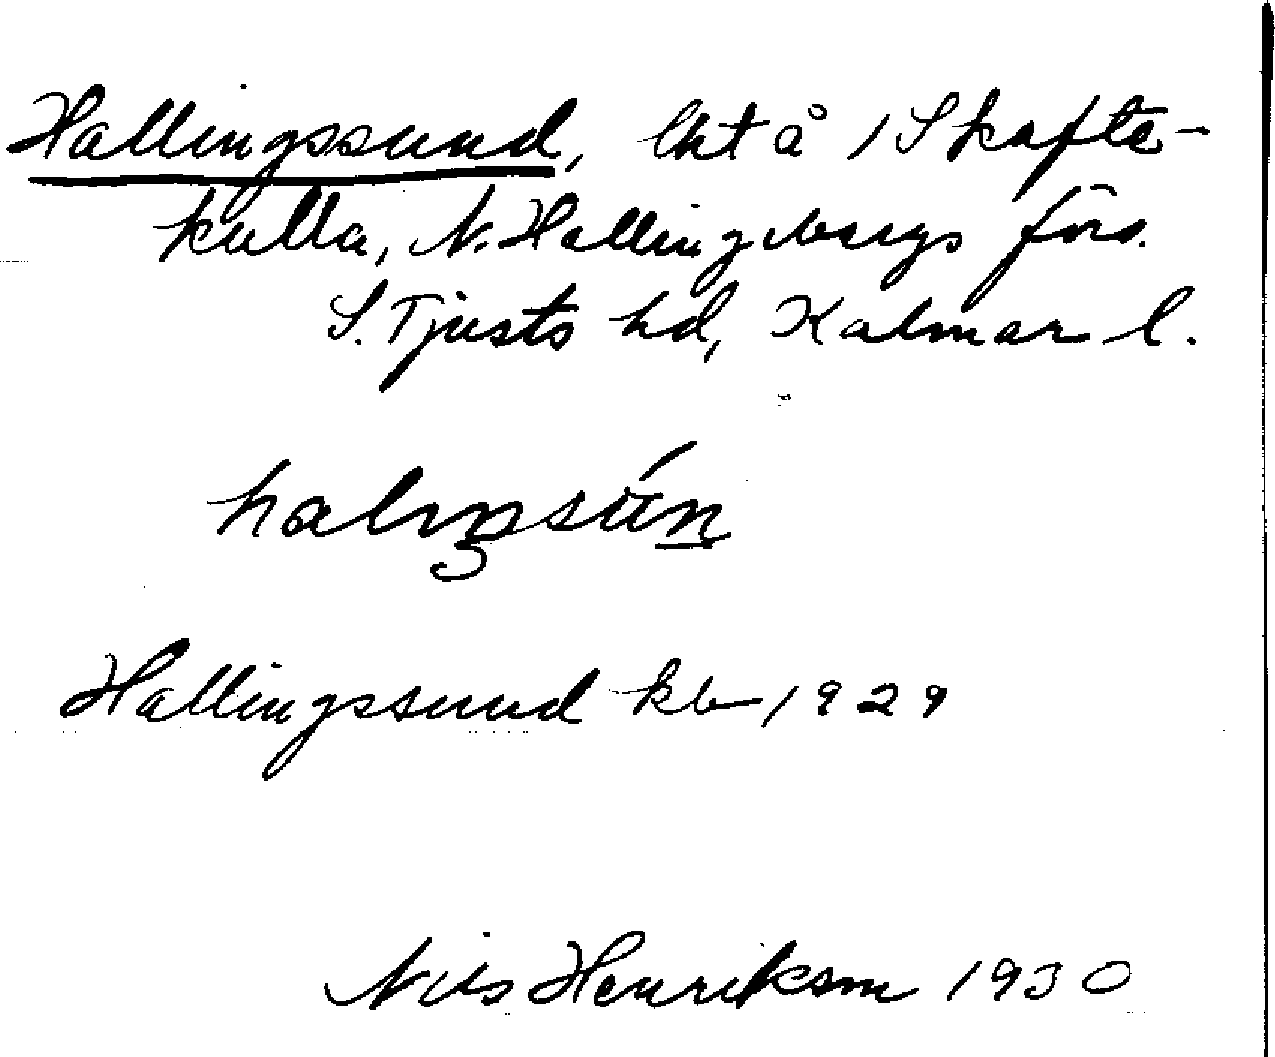 Hallingssund, lht å 1 Skafte-
kulla, N. Hallingbergs förs.
S. Tjusts hd, Kalmar l.
halŋsún
Hallingssund kb 1929
Nils Henrikson 1930